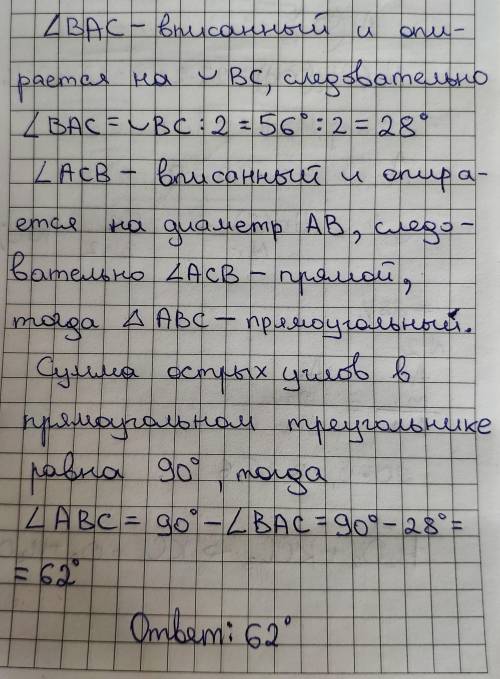 ∠BAC – вписанный и опи-
рается на ◡BC, следовательно
∠BAC = ◡BC : 2 = 56° : 2 = 28°
∠ACB – вписанный и опира-
ется на диаметр AB, следо-
вательно ∠ACB – прямой,
тогда △ABC – прямоугольный.
Сумма острых углов в
прямоугольном треугольнике
равна 90°, тогда
∠ABC = 90° – ∠BAC = 90° – 28° =
= 62°
Ответ: 62°